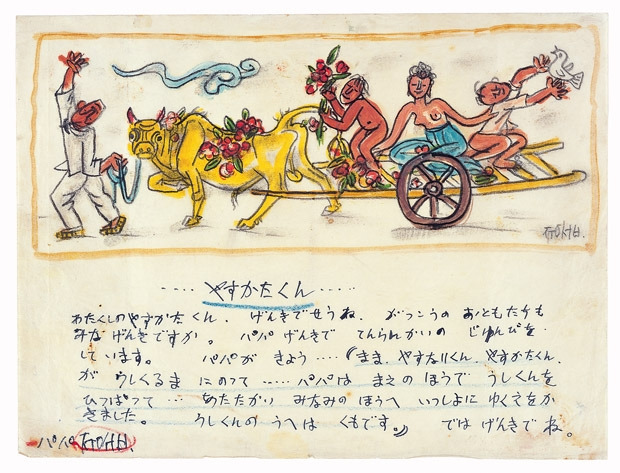 ㅈㅜㅇㅅㅓㅂ
‥‥やすかたくん‥‥
わたくしの やすかた くん、げんきでせうね。がっこうの おともたちも
みな げんきですか。パパ げんきで てんらんかいの じゆんびを
しています。パパが きょう‥‥(まま、やすなりくん、やすかたくん、
が うしくるま にのって‥‥パパは まえの ほうで うしくんを
ひっぱって‥‥あたたかい みなみの ほうへ いっしょに ゆくえをか
きました。うしくんの うへは くもです。) では げんきで ね。
パパ ㅈㅜㅇㅅㅓㅂ